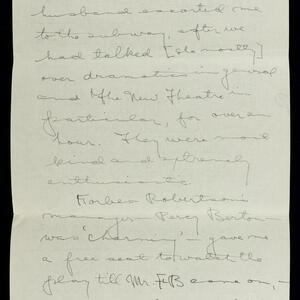 husband escorted me
to the subway, after we
had talked [she mostly]
over dramatics in general
and the New Theatre in
particular, for over an
hour. They were most
kind and extremely
enthusiastic.
Forbes Robertson's
manager – Percy Burton –
was "charming" – gave me
a free seat to watch the
play till Mr. F-R came on, –